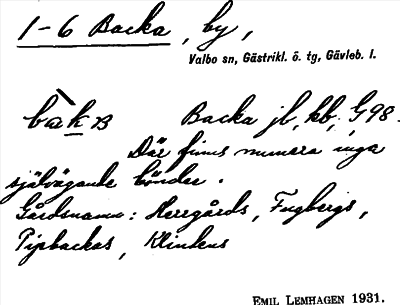 1-6 Backa, by,
Valbo sn, Gästrikl. ö. tg, Gävleb. l.
Backa jb, kb, G98.
Där finns numera inga
självägande bönder.
Gårdsnamn: Herrgårds, Fugbergs,
Pipbackas, Klinkens
EMIL LEMHAGEN 1931.